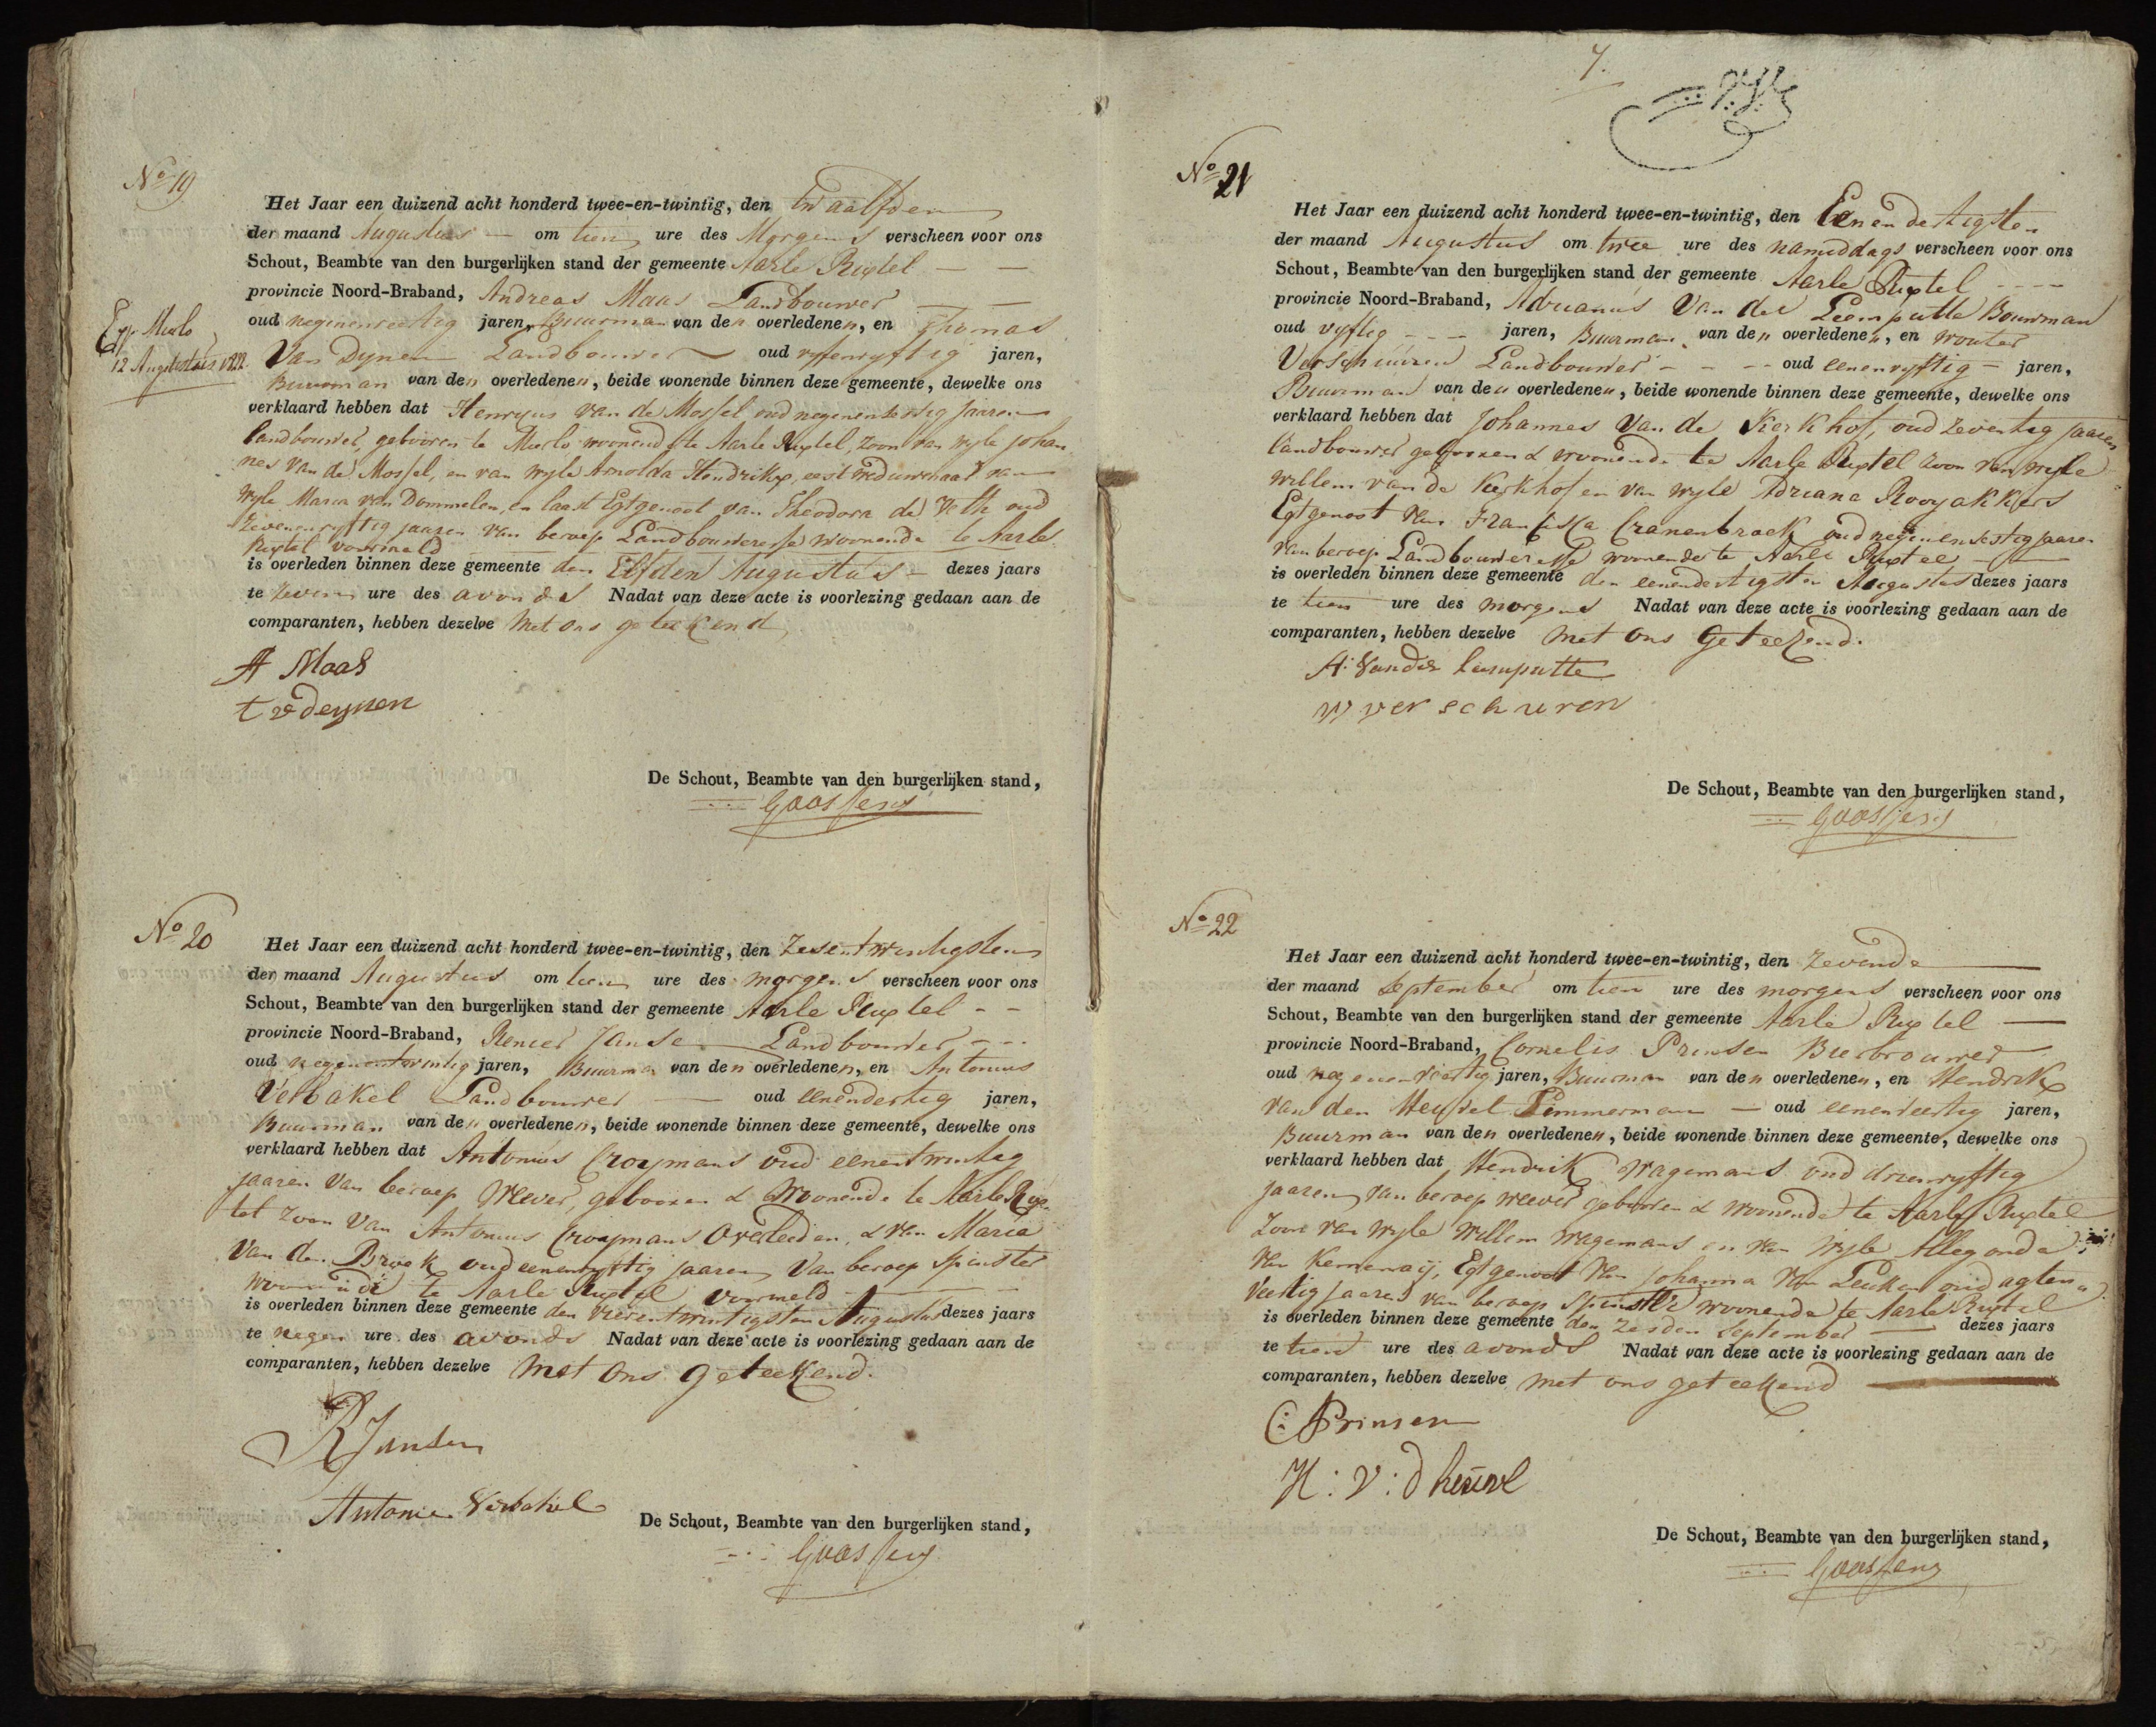 No 19
Het Jaar een duizend acht honderd twee-en-twintig, den twaalfden
der maand Augustus om tien ure des Morgens verscheen voor ons
Schout, Beambte van den burgerlijken stand der gemeente Aarle Rixtel
provincie Noord-Braband, Andreas Maas Landbouwer
oud negenenveertig jaren, Buurman van den overledenen, en Thomas
Van Dynen Landbouwer oud vyfenvyftig jaren,
Buurman van den overledenen, beide wonende binnen deze gemeente, dewelke ons
verklaard hebben dat Henricus van de Mossel oud negenenzestig Jaaren
Landbouwer, gebooren te Mierlo woonend te Aarle Rixtel, zoon van wyle Johan
nes Van de Mossel, en van wyle Arnolda Hendrikx, eerst weduwenaar van
wyle Maria van Dommelen, en laast Egtgenoot van Theodora de Veth oud
zevenenvyftig jaaren van beroep Landbouweresse woonende te Aarle
Rixtel voormeld
is overleden binnen deze gemeente den Elfden Augustus dezes jaars
te zeven ure des avonds Nadat van deze acte is voorlezing gedaan aan de
comparanten, hebben dezelve Met ons geteekend
Mierlo
12 Augustus 1822
A Maas
t v deynen
De Schout, Beambte van den burgerlijken stand,
Goossens
No 20
Het Jaar een duizend acht honderd twee-en-twintig, den zesentwintigsten
der maand Augustus om tien ure des morgens verscheen voor ons
Schout, Beambte van den burgerlijken stand der gemeente Aarle Rixtel
provincie Noord-Braband, Renier Jansen Landbouwer
oud negenentwintig jaren, Buurman van den overledenen, en Antonius
Verbakel Landbouwer oud eenendertig jaren,
Buurman van den overledenen, beide wonende binnen deze gemeente, dewelke ons
verklaard hebben dat Antonius Crooymans oud eenentwintig
jaaren Van beroep Wever, gebooren & Woonende te Aarle Rix
tel zoon Van Antonius Crooymans Overleeden, & van Maria
Van den Broek oud eenenvyftig jaaren Van beroep Spinster
woonende te Aarle Rixtel voormeld
is overleden binnen deze gemeente den vierentwintigsten Augustus dezes jaars
te negen ure des avonds Nadat van deze acte is voorlezing gedaan aan de
comparanten, hebben dezelve Met ons geteekend.
R Jansen
Antonie Verbakel
De Schout, Beambte van den burgerlijken stand,
Goossens
7.
No 21
Het Jaar een duizend acht honderd twee-en-twintig, den Eenendertigsten
der maand Augustus om twee ure des namiddags verscheen voor ons
Schout, Beambte van den burgerlijken stand der gemeente Aarle Rixtel
provincie Noord-Braband, Adrianus Van der Leemputte Bouwman
oud vyftig jaren, Buurman van den overledenen, en wouter
Verschuuren Landbouwer oud eenenvyftig jaren,
Buurman van den overledenen, beide wonende binnen deze gemeente, dewelke ons
verklaard hebben dat Johannes Van de Kerkhof, oud zeventig jaaren
Landbouwer gebooren & woonende te Aarle Rixtel zoon van wyle
Willem van de Kerkhof en van wyle Adriana Rooyakkers
Egtgenoot van Francisca Cranenbroek oud negenenzestig jaaren
van beroep Landbouweresse woonende te Aarle Rixtel
is overleden binnen deze gemeente den eenendertigsten Augustus dezes jaars
te tien ure des morgens Nadat van deze acte is voorlezing gedaan aan de
comparanten, hebben dezelve Met ons Geteekend.
A: Vander leemputte
W verschuren
De Schout, Beambte van den burgerlijken stand,
Goossens
No 22
Het Jaar een duizend acht honderd twee-en-twintig, den Zevende
der maand September om tien ure des morgens verscheen voor ons
Schout, Beambte van den burgerlijken stand der gemeente Aarle Rixtel
provincie Noord-Braband, Cornelis Prinsen Bierbrouwer
oud negenenveertig jaren, Buurman van den overledenen, en Hendrik
van den Heuvel Timmerman oud eenenveertig jaren,
Buurman van den overledenen, beide wonende binnen deze gemeente, dewelke ons
verklaard hebben dat Hendrik Wagemans oud drieenvyftig
jaaren van beroep wever gebooren & woonende te Aarle Rixtel
zoon van wyle Willem Wagemans en van Wyle Allegonda
Van Kemenaij, Egtgenoot Van Johanna Van Leuken oud agten
veertig jaaren van beroep Spinster woonende te Aarle Rixtel
is overleden binnen deze gemeente den zesden September dezes jaars
te tien ure des avonds Nadat van deze acte is voorlezing gedaan aan de
comparanten, hebben dezelve met ons geteekend
C: Prinsen
H: V: D heuvel
De Schout, Beambte van den burgerlijken stand,
Goossens